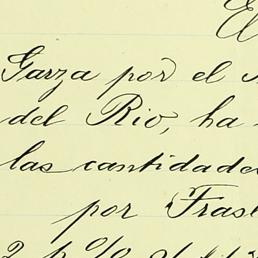 El
Garza por el
del Rio, ha
las cantidades
por Trasl
2 p%